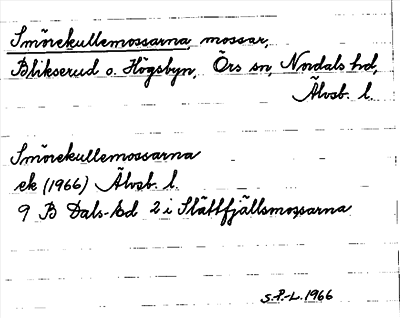 Smörekullemossarna, mossar,
Blikserud o. Högsbyn, Örs sn, Nordals hd,
Älvsb. l.
Smörekullemossarna
ek (1966) Älvsb. l.
9 B Dals-Ed 2 i Slättfjällsmossarna
S.P.-L. 1966